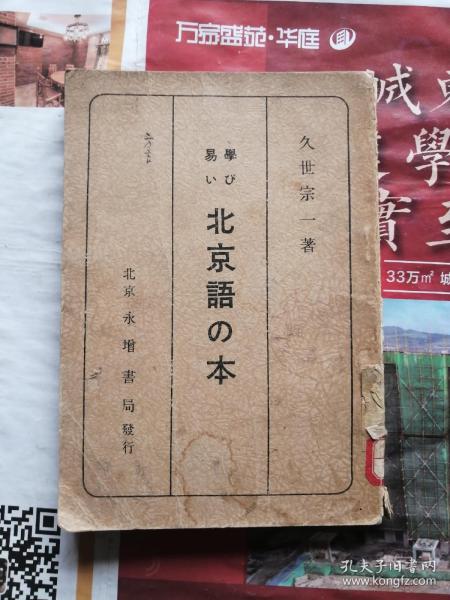 万帝盛苑·华庭
诚
學
實
至
33万㎡ 城
久世宗一著
學び
易い
北京語の本
北京 永增書局發行
孔夫子旧书网
www.kongfz.com